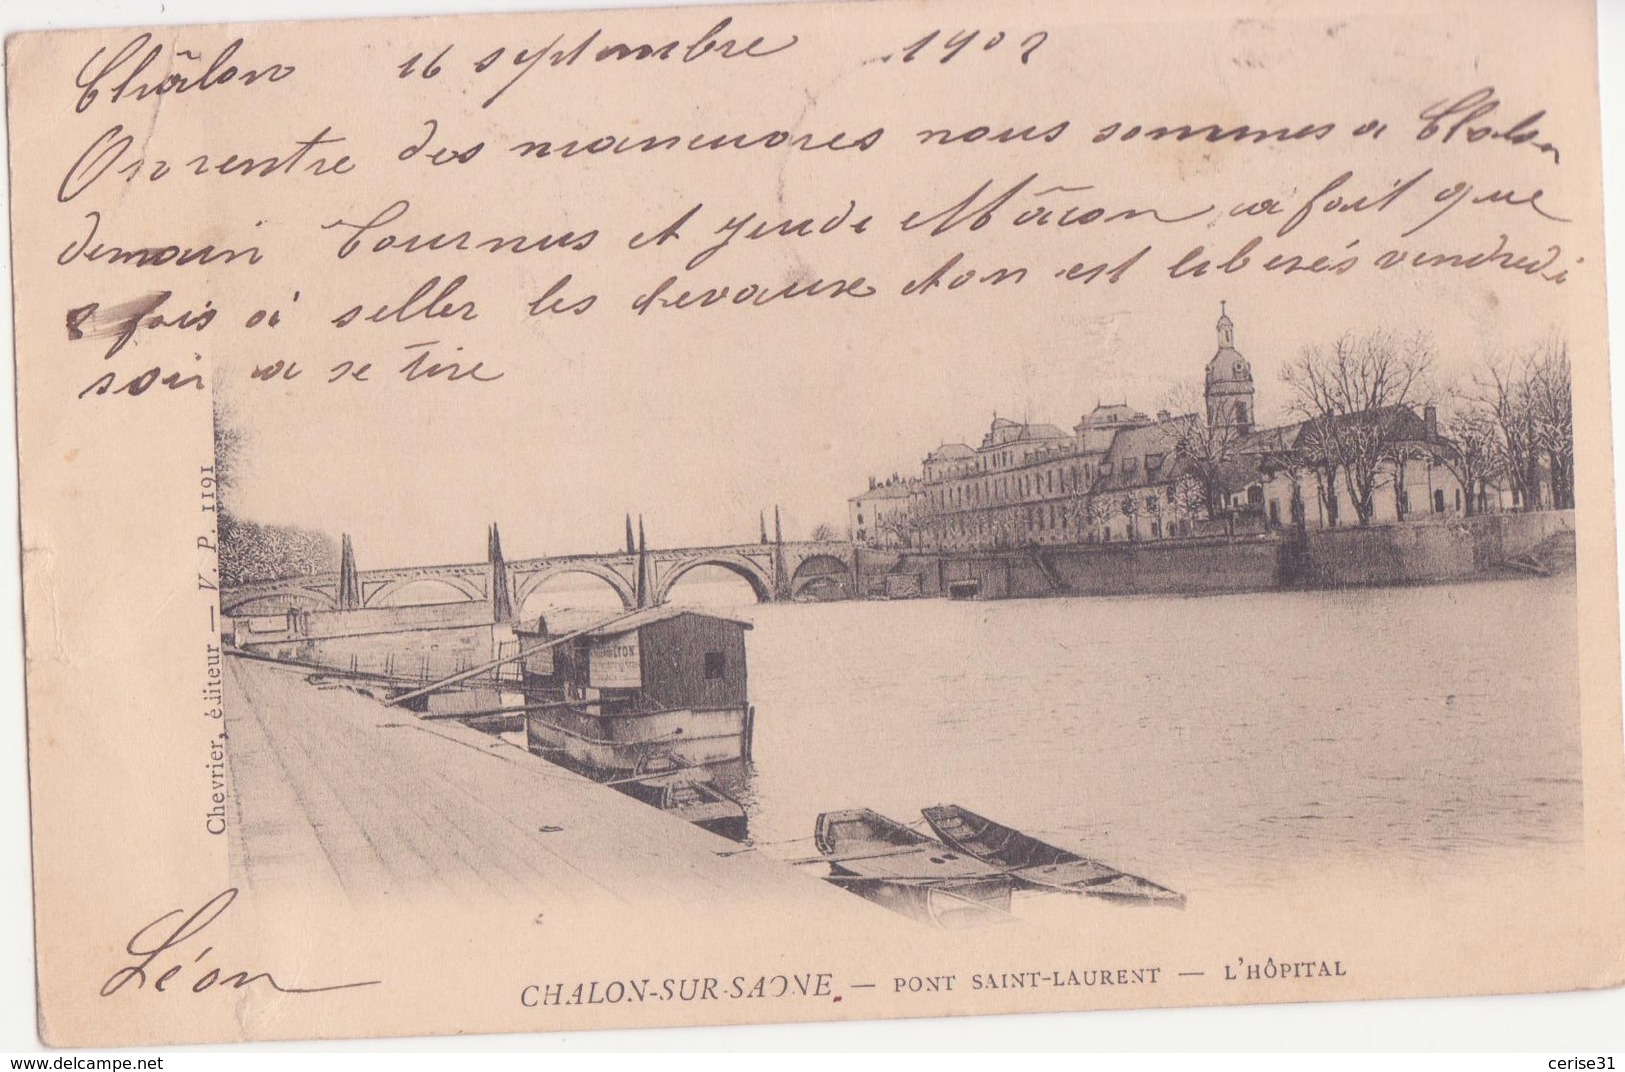 Châlon 16 septembre 1902
On rentre des maneuvores nous sommes a Chalon
demain Tournus et jeudi Mâcon ca fait que
2 fois à seller les chevaux et on est liberés vendredi
soir ca se tire
Chevrier, éditeur — V. P. 1191
LYON
Léon
CHALON-SUR-SAONE. — PONT SAINT-LAURENT — L'HÔPITAL
www.delcampe.net
cerise31